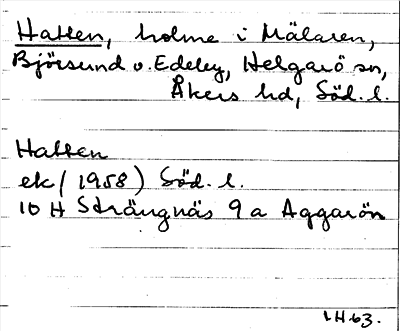 Hatten, holme i Mälaren,
Björsund o. Edeby, Helgarö sn,
Åkers hd, Söd. l.
Hatten
ek (1958) Söd. l.
10 H Strängnäs 9 a Aggarön
LH63.